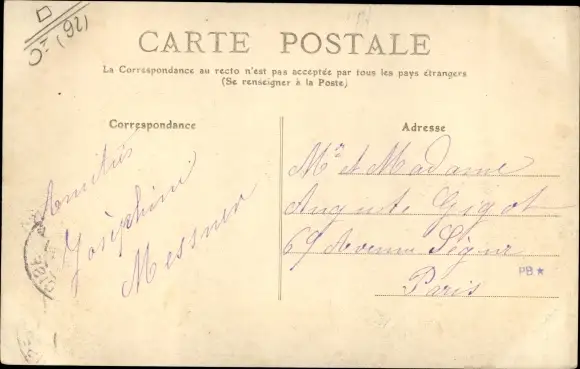 (92)
CARTE POSTALE
La Correspondance au recto n'est pas acceptée par tous les pays étrangers
(Se renseigner à la Poste)
Correspondance
Amitiés
Joséphine
Messner
Adresse
Mr et Madame
Auguste Gigot
69 Avenue Ségur
Paris
PB★